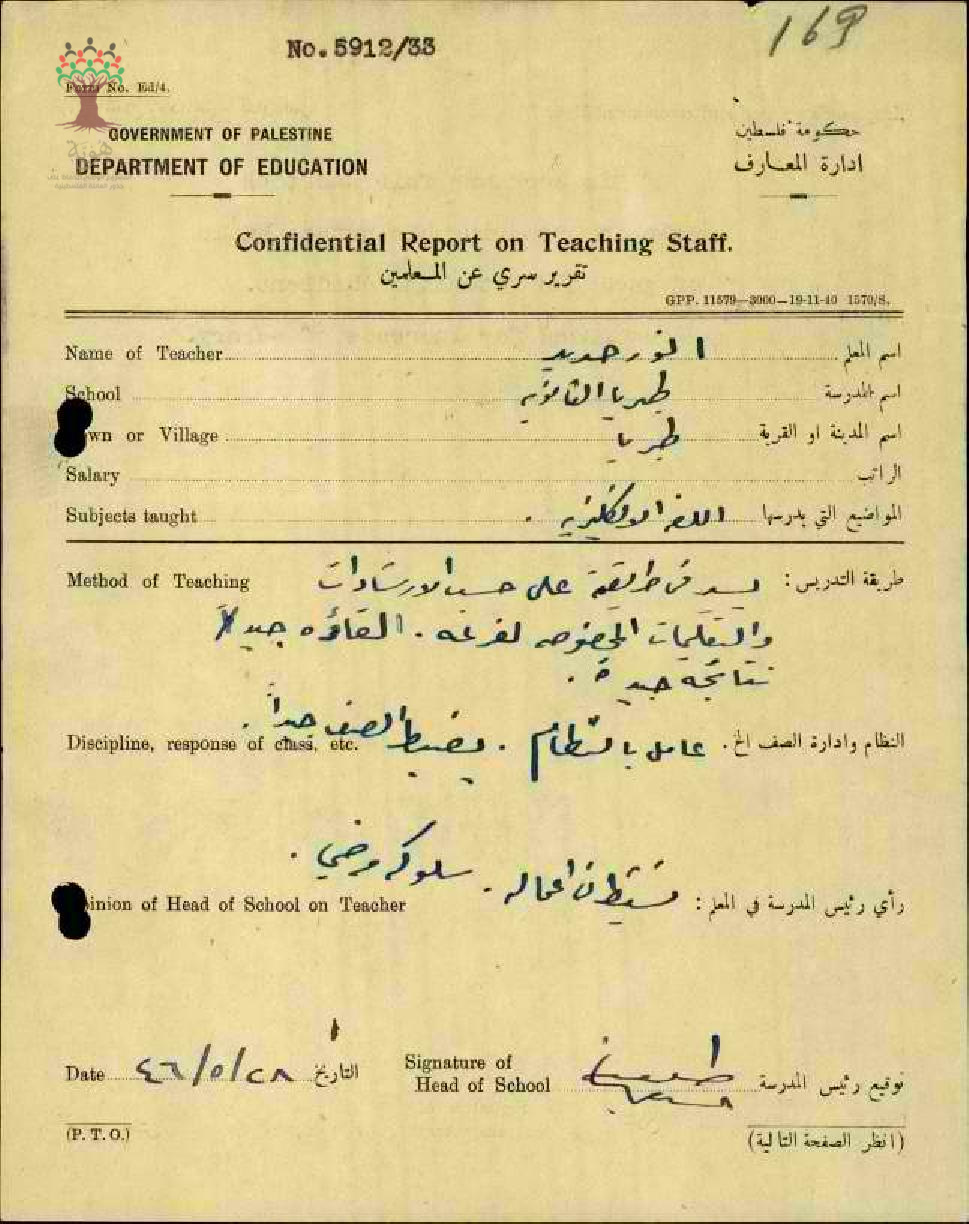 169
No. 5912/33
Form No. Ed/4.
GOVERNMENT OF PALESTINE
حكومة فلسطين
DEPARTMENT OF EDUCATION
ادارة المعارف
Confidential Report on Teaching Staff.
تقرير سري عن المعلمين
GPP. 11579—3000—19-11-40 1570/S.
Name of Teacher انور حديد اسم المعلم
School طبريا الثانويه اسم المدرسة
Town or Village طبريا اسم المدينة او القرية
Salary الراتب
Subjects taught اللغه الانكليزيه . المواضيع التي يدرسها
Method of Teaching طريقة التدريس : يسير في طريقة على حسب الارشادات
والتعليمات المخصوصه لفرعه . القاؤه جيد
نتائجه جيدة .
Discipline, response of class, etc. النظام وادارة الصف الخ . عامل بانتظام . يضبط الصف جداً .
Opinion of Head of School on Teacher رأي رئيس المدرسة في المعلم : في اعماله . سلوكه مرضي .
Date ٤٦/٥/٢٨ التاريخ
Signature of Head of School توقيع رئيس المدرسة
(P. T. O.)
(انظر الصفحة التالية)